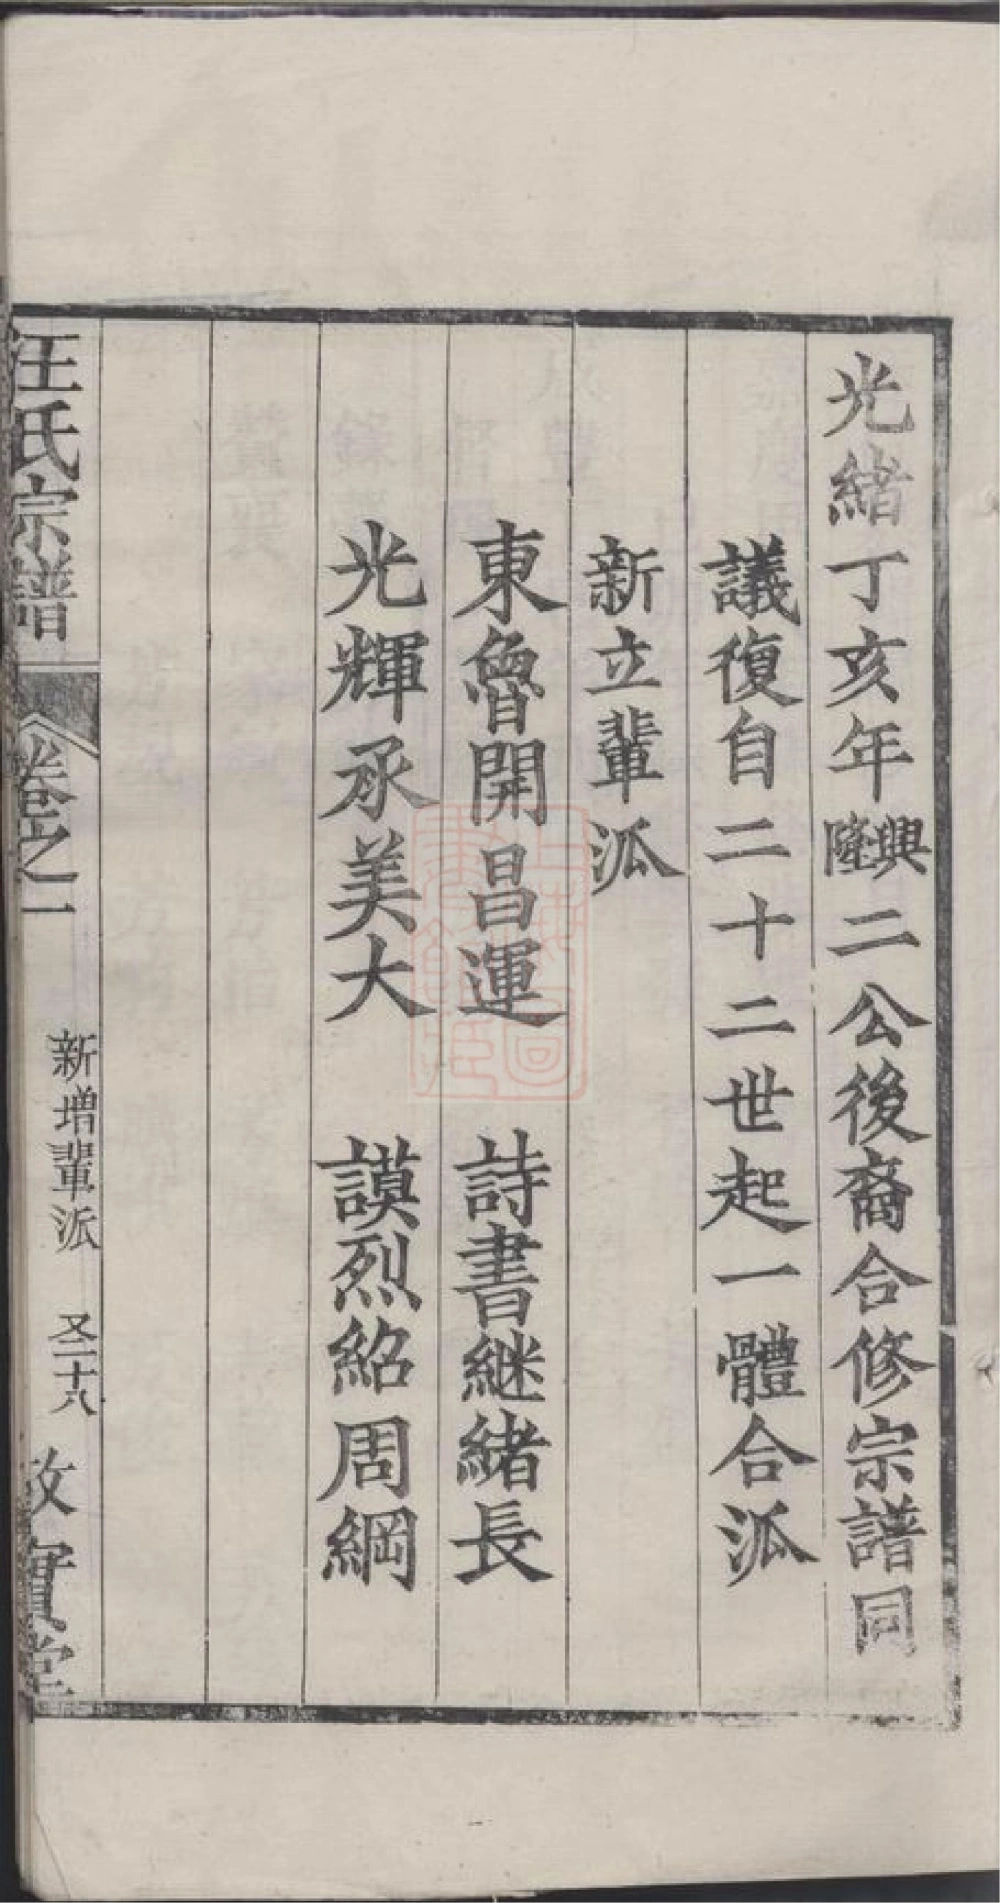 光緒丁亥年興隆二公後裔合修宗譜同
議復自二十二世起一體合派
新立輩派
東魯開昌運 詩書継緒長
光輝承美大 謨烈紹周綱
汪氏宗譜 卷之一 新增輩派 又二十八 敦實堂